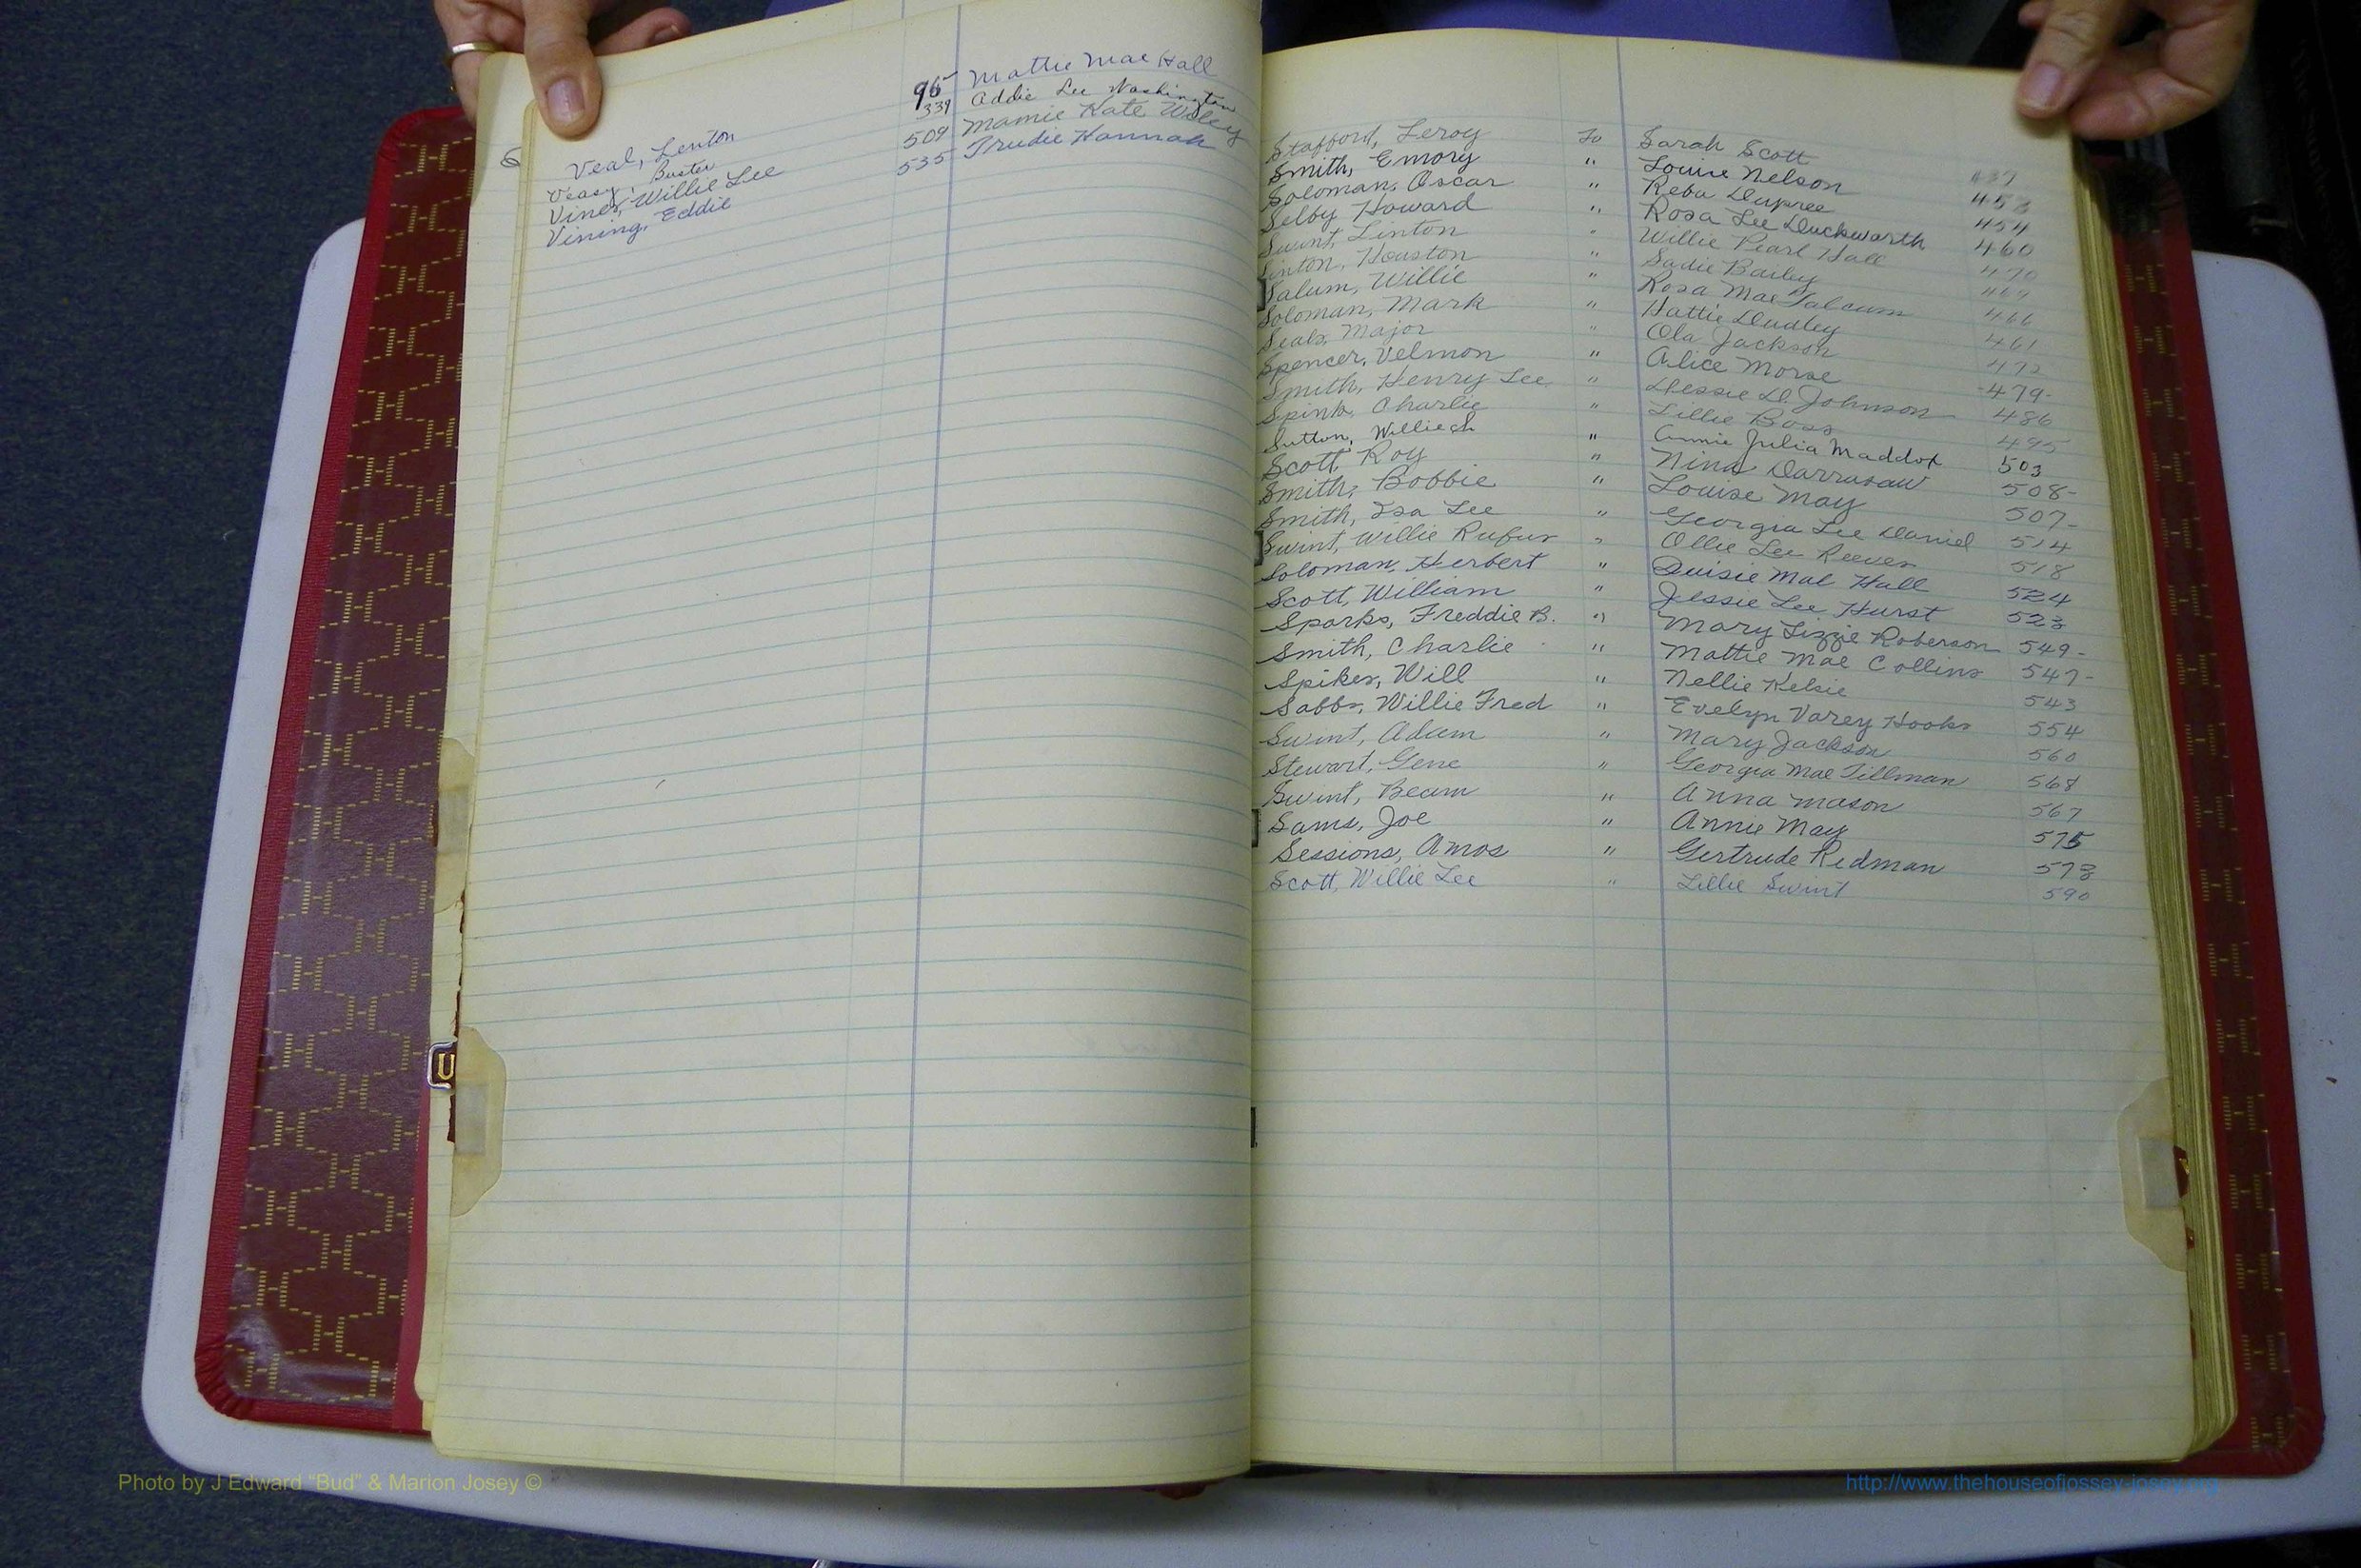 Veal, Lenton 95 Mattie Mae Hall
Veasy, Buster 339 Addie Lee Washington
Viney, Willie Lee 509 Mamie Kate Wiley
Vining, Eddie 535 Trudie Hannah
Stafford, Leroy To Sarah Scott 437
Smith, Emory " Louise Nelson 453
Soloman, Oscar " Reba Dupree 454
Selby Howard " Rosa Lee Duckworth 460
Swint, Linton " Willie Pearl Hall 470
Houston " Sadie Bailey
Salum, Willie " Rosa Mae 466
Soloman, Mark " Hattie Dudley 461
Seals, Major " Ola Jackson 472
Spencer, Velmon " Alice Morse 479
Smith, Henry Lee " Dessie D. Johnson 486
Spink, Charlie " Lillie Boss 495
Sutton, Willie " Annie Julia Maddox 503
Scott, Roy " Nina 508
Smith, Bobbie " Louise May 507
Smith, Isa Lee " Georgia Lee Daniel 514
Swint, Willie Rufus " Ollie Lee Reeves 518
Soloman, Herbert " Mae Hall 524
Scott, William " Jessie Lee Hurst 523
Sparks, Freddie B. " Mary Lizzie Roberson 549
Smith, Charlie " Mattie Mae Collins 547
Spikes, Will " Nellie Kelsie 543
Sabbs, Willie Fred " Evelyn Varey Hooks 554
Swint, Adam " Mary Jackson 560
Stewart, Gene " Georgia Mae Tillman 568
Swint, Beam " Anna Mason 567
Sams, Joe " Annie May 575
Sessions, Amos " Gertrude Redman 578
Scott, Willie Lee " Lillie Swint 590
U
Photo by J Edward "Bud" & Marion Josey ©
http://www.thehouseofjossey-josey.org